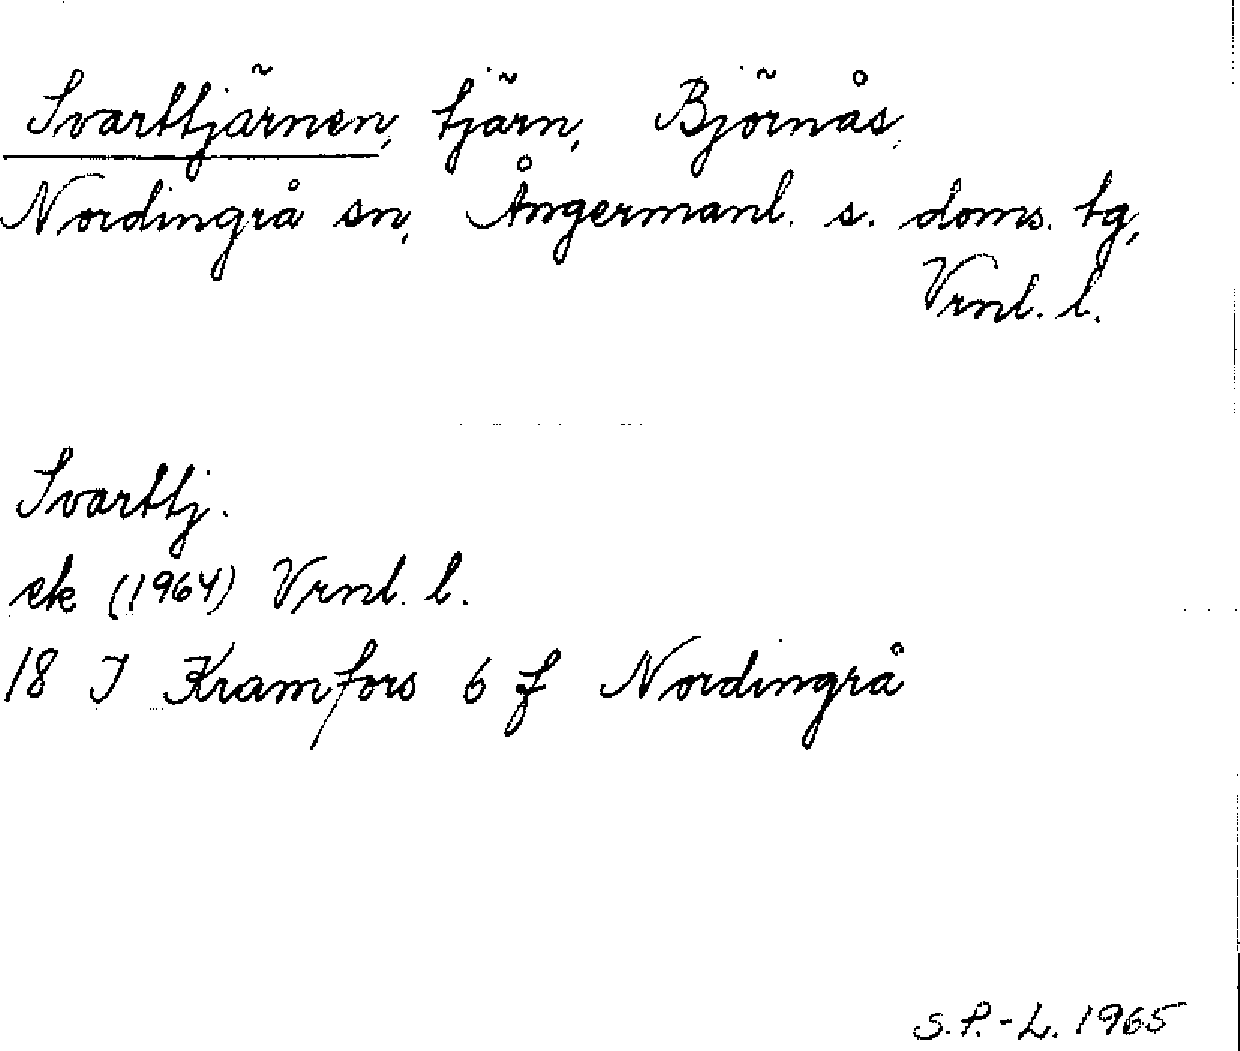 Svarttjärnen, tjärn, Björnås,
Nordingrå sn, Ångermanl. s. doms. tg,
Vrnl. l.
Svarttj.
ek (1964) Vrnl. l.
18 J Kramfors 6 f Nordingrå
S.P.-L. 1965